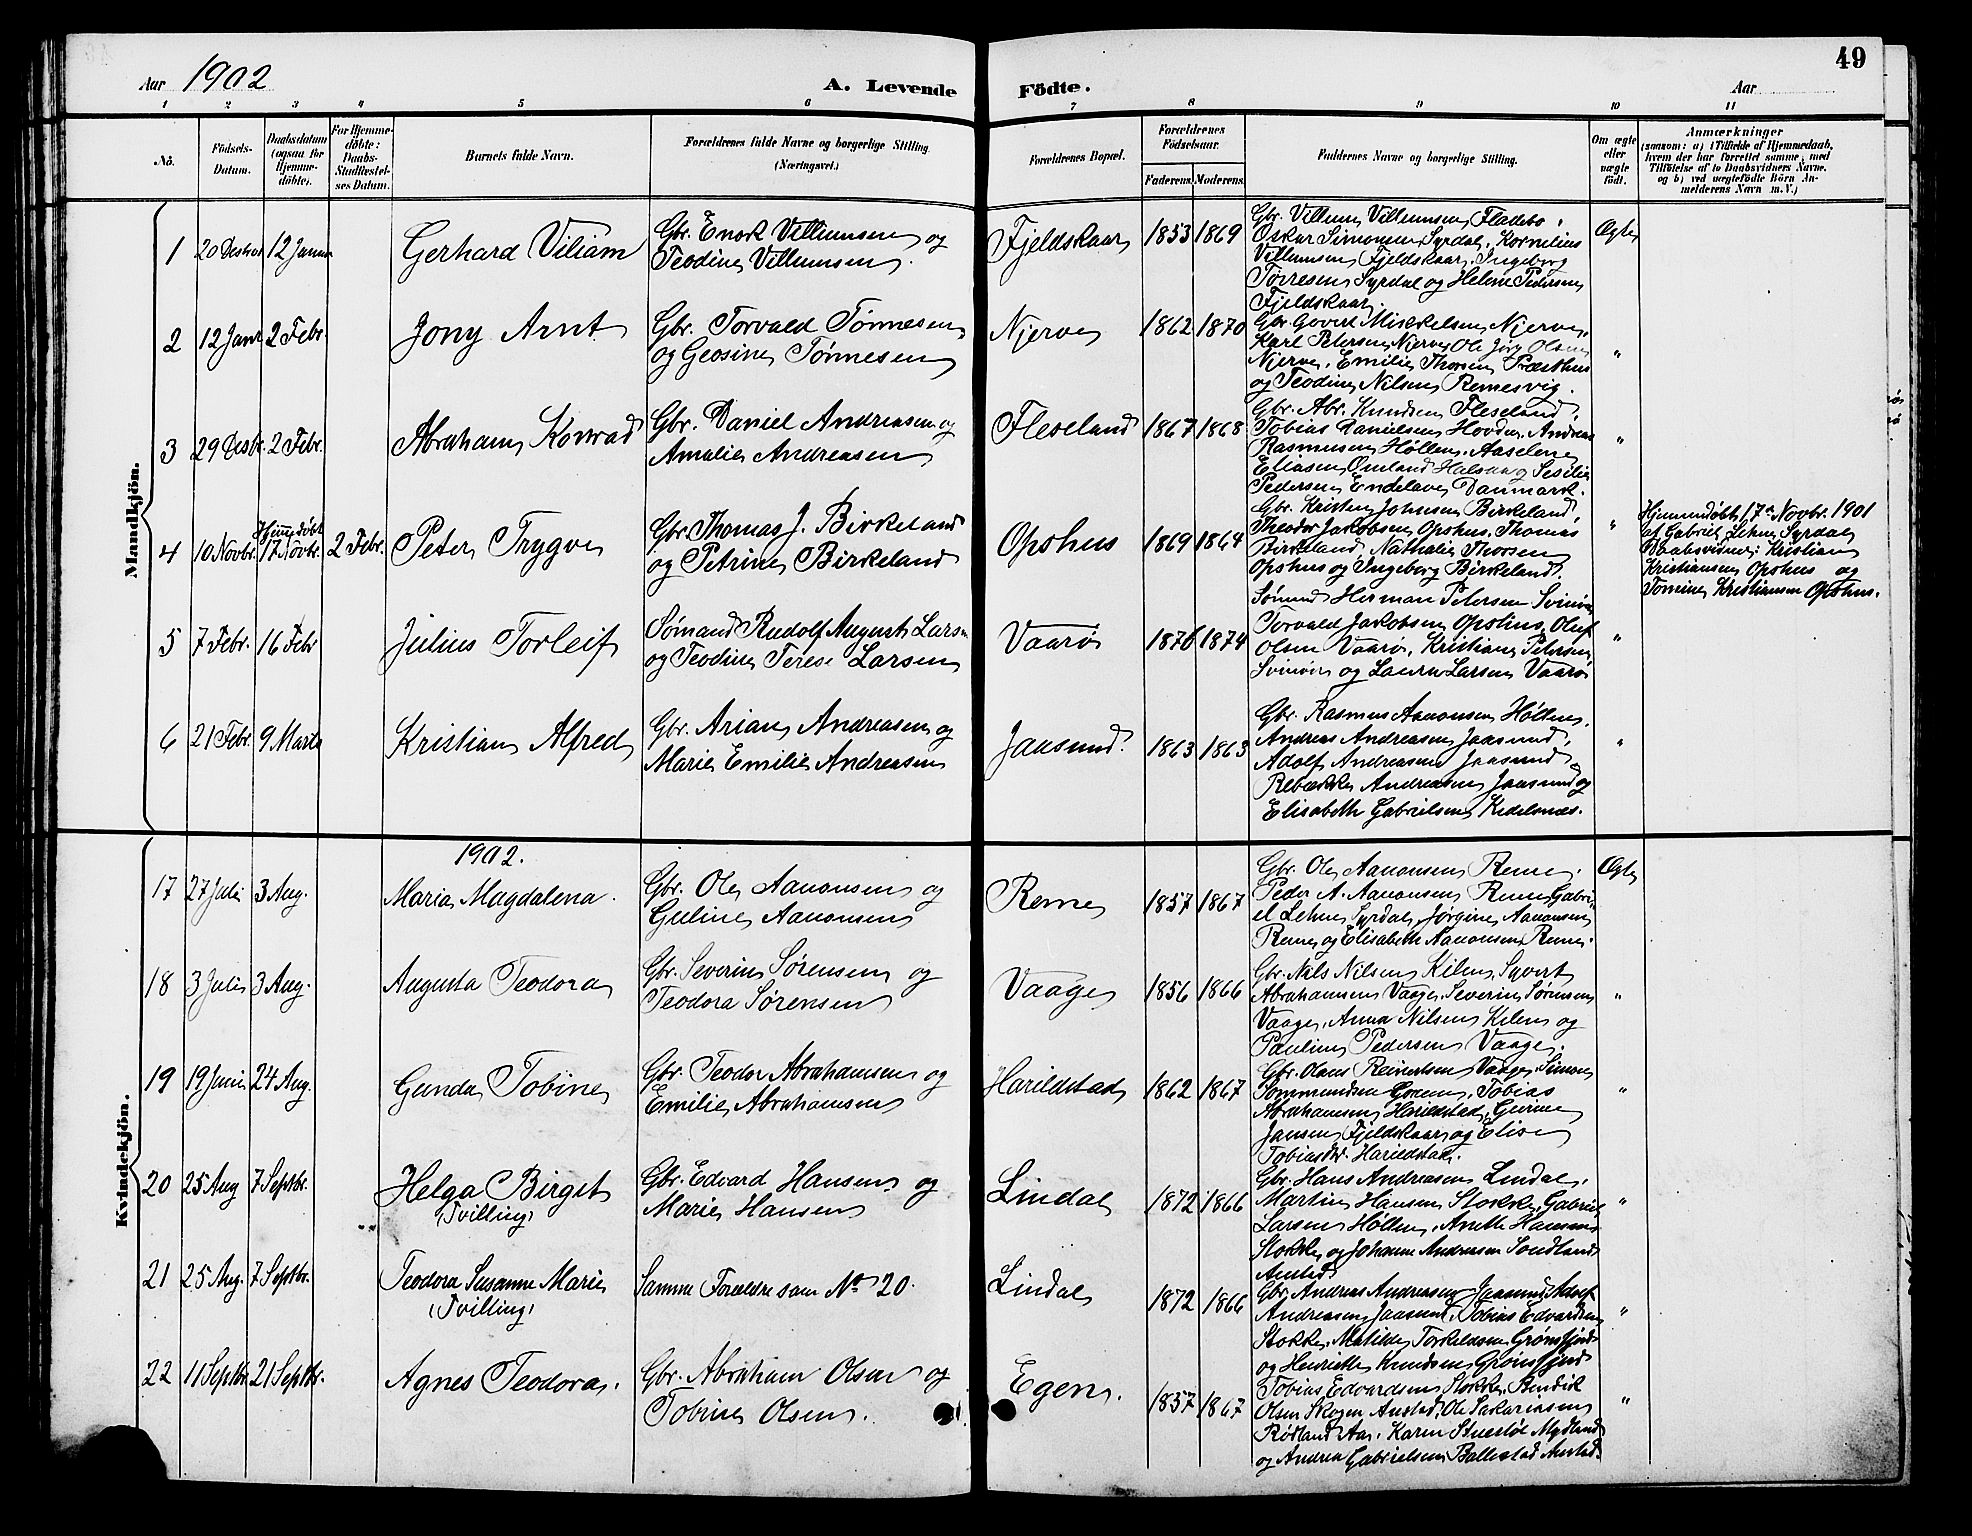 49
Aar 1902
A. Levende Födte.
Aar
1 2 3 4 5 6 7 8 9 10 11
No.
Födsels-
Datum.
Daabsdatum
(ogsaa for
Hjemme-
döbte).
For Hjemme-
döbte:
Daabs-
Stadfæstel-
ses Datum.
Barnets fulde Navn.
Forældrenes fulde Navne og borgerlige Stilling
(Næringsvei.)
Forældrenes Bopæl.
Forældrenes
Födselsaar.
Faderens. Moderens.
Faddernes Navne og borgerlige Stilling.
Om ægte
eller
uægte
födt.
Anmærkninger
(saasom: a) i Tilfælde af Hjemmedaab,
hvem der har forrettet samme, med
Tilföielse af to Daabsvidners Navne,
og b) ved uægtefödte Börn An-
melderens Navn m. V.)
Mandkjön.
1 20 12 Januar
Gerhard Viliam
Gbr. Enok Villumsen og
Teodine Villumsen.
Fjeldskaar
1853 1869
Gbr. Villum Villumsen, Fladebo,
Oskar Simonsen Syrdal, Kornelius
Villumsen Fjeldskaar, Ingeborg
Tørresen Syrdal og Helene Pedersen
Fjeldskaar.
Ægte
2 12 Janr 2 Febr.
Jony Arnt
Gbr. Torvald Tønnesen
og Geosine Tønnesen
Njerve
1862 1870
Gbr. Govert Mikkelsen Njerve,
Karl Petersen Njerve, Ole Jørg Olsen
Njerve, Emilie Thorsen Præsthus
og Teodine Nilsen Remesvig.
"
3 29 Desbr. 2 Febr.
Abraham Konrad
Gbr. Daniel Andreasen og
Amalie Andreasen
Fleseland
1867 1868
Gbr. Abr. Knudsen Fleseland,
Tobias Danielsen Hovden, Andreas
Rasmussen Høllen, Aaselene
Eliasen Omland Halsaa og Sesilie
Pedersen Endelave Danmark.
"
4 10 Novbr. Hjemmedøbt
17 Novbr. 2 Febr.
Peter Trygve
Gbr. Thomas J. Birkeland
og Petrine Birkeland
Opshus
1869 1864
Gbr. Kristen Johnsen Birkeland
Theodor Jakobsen Opshus, Thomas
Birkeland, Nathalie Thorsen
Opshus og Ingeborg Birkeland.
"
Hjemmedøbt 17 Novbr. 1901
af Gabriel Lehne Syrdal,
Daabsvidner: Kristian
Kristiansen Opshus og
Tomine Kristiansen Opshus.
5 7 Febr. 16 Febr
Julius Torleif
Sømand Rudolf August Larsen
og Teodine Terese Larsen
Vaarø
1876 1874
Sømand Herman Petersen Svinør
Torvald Jakobsen Opshus, Oluf
Olsen Vaarø, Kristiane Petersen
Svinør og Laura Larsen Vaarø
"
6 21 Febr. 9 Marts
Kristian Alfred
Gbr. Arian Andreasen og
Marie Emilie Andreasen
Jaasund.
1863 1863
Gbr. Rasmus Aanonsen Høllen,
Andreas Andreasen Jaasund,
Adolf Andreasen Jaasund,
Rebækka Andreasen Jaasund og
Elisabeth Gabrielsen Kedelsnes.
"
Kvindekjön.
1902.
17 27 Juli 3 Aug.
Maria Magdalena.
Gbr. Ole Aanonsen og
Guline Aanonsen
Reme
1857 1867
Gbr. Ole Aanonsen Reme.
Peder A. Aanonsen Reme, Gabri-
el Lehne Syrdal, Jørgine Aanonsen
Reme og Elisabeth Aanonsen Reme.
Ægte
18 3 Juli 3 Aug.
Augusta Teodora
Gbr. Severin Sørensen og
Teodora Sørensen
Vaage
1856 1866
Gbr. Nils Nilsen Kilen, Syvert
Abrahamsen Vaage, Severin Sørensen
Vaage, Anna Nilsen Kilen og
Pauline Pedersen Vaage.
"
19 19 Juni 24 Aug.
Gunda Tobine
Gbr. Teodor Abrahamsen og
Emilie Abrahamsen
Harildstad
1862 1867
Gbr. Olaus Reinertsen Vaage, Simon
Tommundsen, Tobias
Abrahamsen Harildstad,
Jansen Fjeldskaar og Elise
Tobiasdr. Harildstad.
"
20 25 Aug 7 Septbr.
Helga Birgit
(Tvilling)
Gbr. Edvard Hansen og
Marie Hansen
Lindal
1872 1866
Gbr. Hans Andreasen Lindal,
Martin Hansen Stokke, Gabriel
Larsen Høllen, Anette Hansen
Stokke og Johanne Andreasen Sondland
"
21 25 Aug. 7 Septbr.
Teodora Susanne Marie
(Tvilling)
Samme Forældre som No 20.
Lindal
1872 1866
Gbr. Andreas Andreasen Jaasund, Adolf
Andreasen Jaasund, Tobias Edvardsen
Stokke, Matilde Torkeldsen Grønsfjord
og Henriette Knudsen Grønsfjord
"
22 11 Septbr. 21 Septbr.
Agnes Teodora.
Gbr. Abraham Olsen og
Tobine Olsen.
Egen.
1857 1867
Tobias Edvardsen Stokke, Bendik
Olsen Skogen, Ole Sakariasen
Rødland Aas, Karen Stuestøl Mydland
og Andrea Gabrielsen Ballestad
"